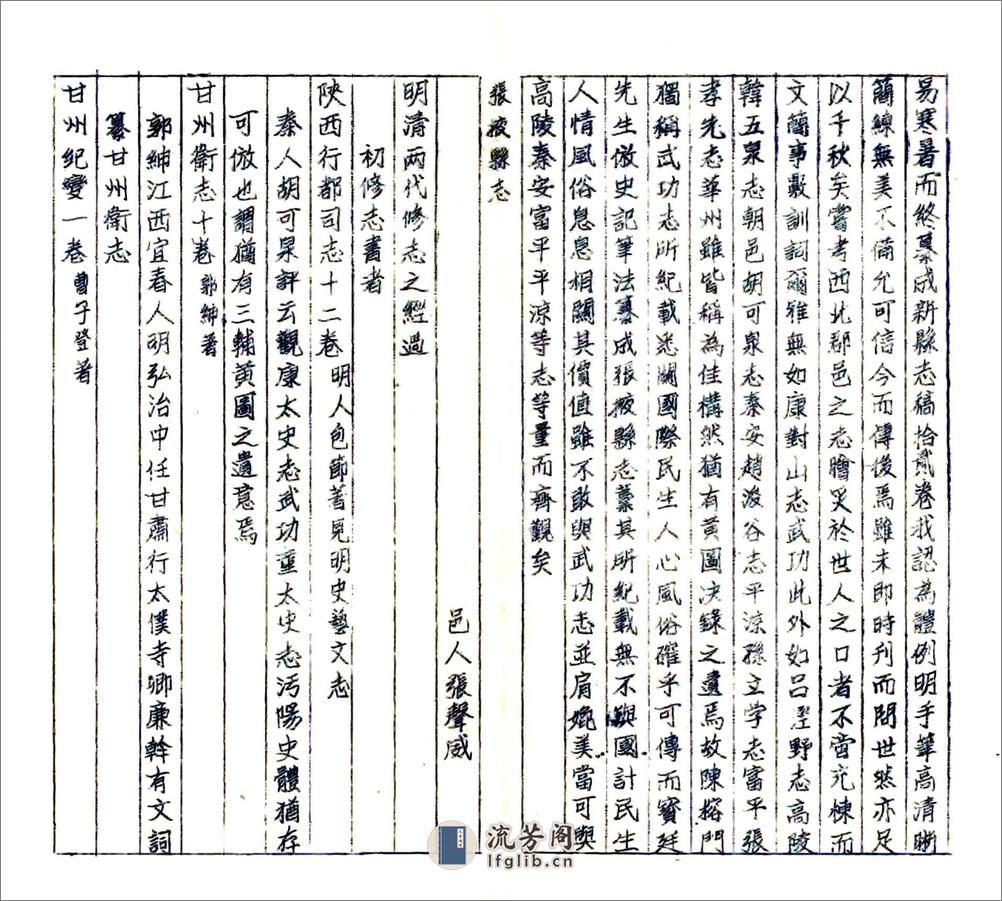 易寒暑而終纂成新縣志稿拾貳卷我認為體例明手筆高清晰
簡練無美不備允可信今而傳後焉雖未即時刊而問世然亦足
以千秋矣嘗考西北郡邑之志膾炙於世人之口者不啻充棟而
文簡事覈訓詞爾雅無如康對山志武功此外如呂涇野志高陵
韓五泉志朝邑胡可泉志秦安趙浚谷志平涼孫立学志富平張
孝先志華州雖皆稱為佳構然猶有黃圖决錄之遺焉故陳榕門
獨稱武功志所紀載悉關國際民生人心風俗確乎可傳而寶廷
先生倣史記筆法纂成張掖縣志藁其所紀載無不與國計民生
人情風俗息息相關其價值雖不敢與武功志並肩媲美當可與
高陵秦安富平平涼等志等量而齊觀矣
張掖縣志
邑人張聲威
明清兩代修志之經過
初修志書者
陝西行都司志十二卷 明人包節著見明史藝文志
秦人胡可泉評云觀康太史志武功童太史志沔陽史體猶存
可倣也謂猶有三輔黃圖之遺意焉
甘州衛志十卷 郭紳著
郭紳江西宜春人明弘治中任甘肅行太僕寺卿廉幹有文詞
纂甘州衛志
甘州紀變一卷 曹子登著
流芳阁
lfglib.cn